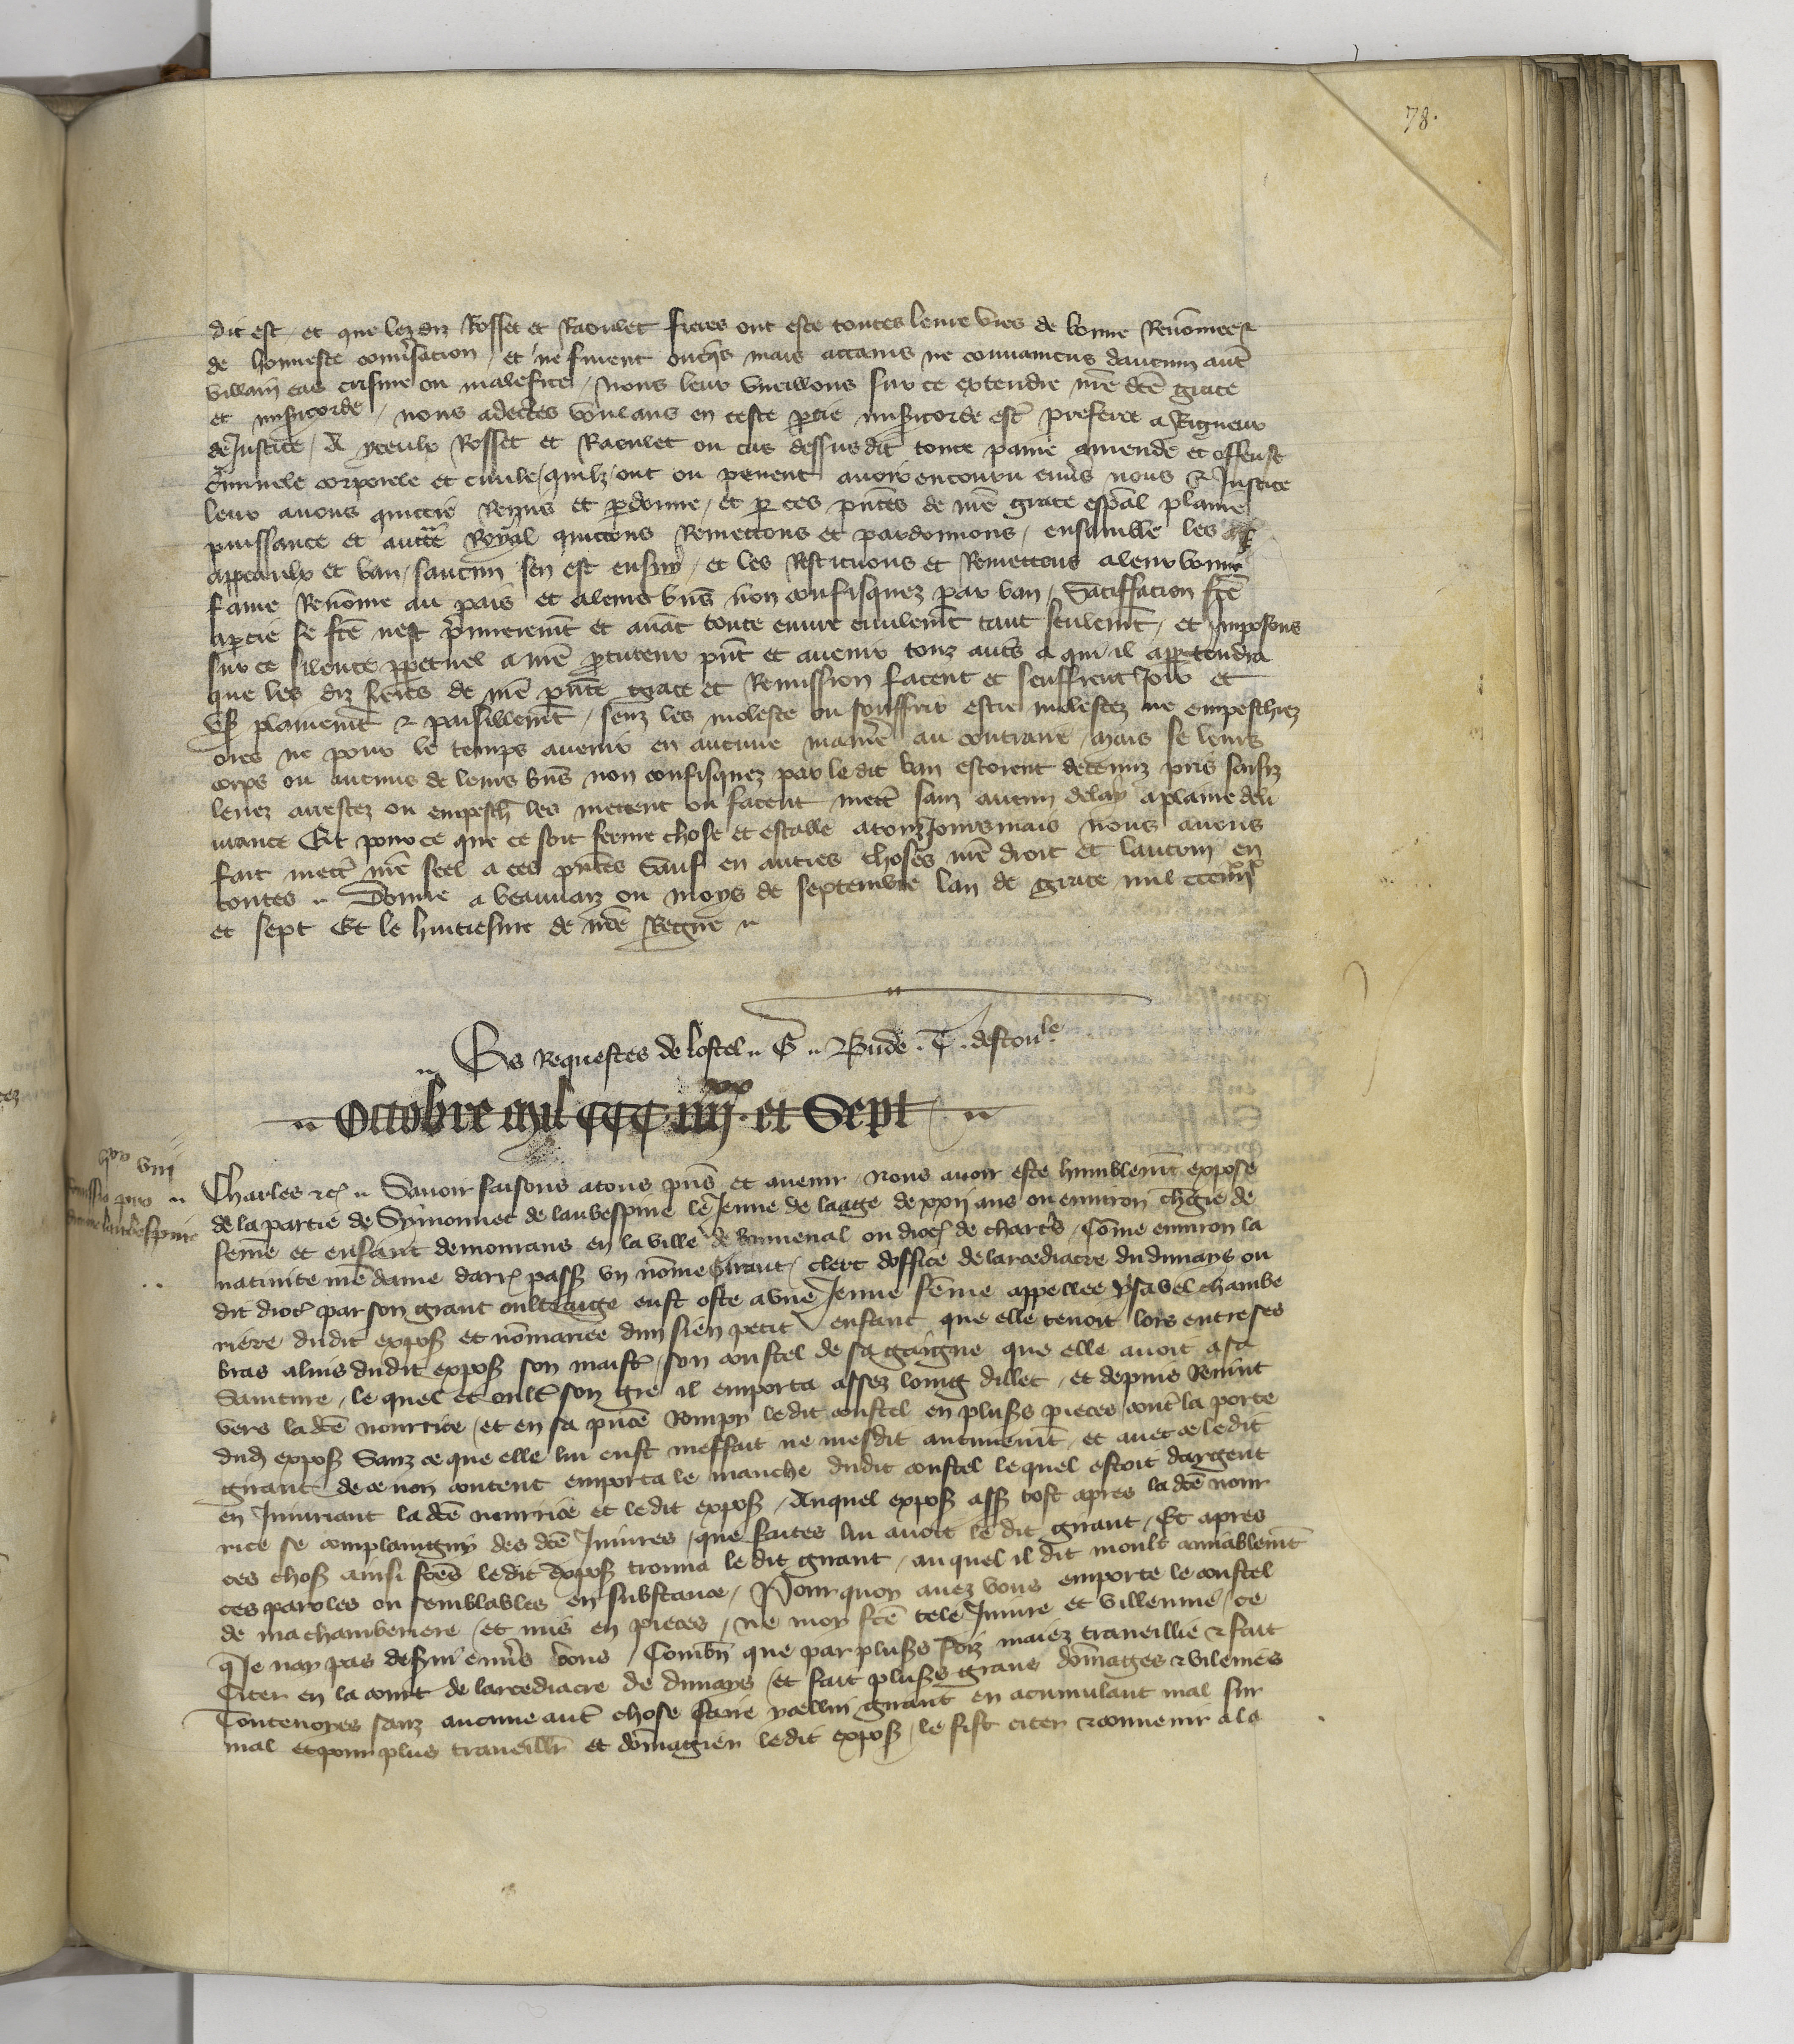 78.
dit est / et que lez diz Rosset et Raoulet freres ont este toutes leurs vies de bonne Renom̃ee et
de honneste conũsation / et ne furent onq̃s mais attains ne convaincus daucun aut̃
villain cas crisme ou malefice / nous leur vueillons sur ce extendre nr̃e dc̃e grace
et misẽicorde / nous adec̃tes voulans en ceste p̃tie misẽicorde est̃ preferee a Rigueur
de Justice / A yceulx Rosset et Raoulet ou cas dessusdit toute paine amende et offense
c̃minele corporele et civile / quilz ont ou pevent avoir encouru env̾s nous & Justice
leur avons quictie Remis et p̃donne / et p̃ ces pñtes de nr̃e grace esp̃al plaine
puissance et auct̃te Royal quittons Remettons et pardonnons / ensemble les
appeaulx et ban / saucun sen est ensuy / et les Restituons et Remettons a leur bonne
fame Renom̃e au pais et a leurs bñs non confisquez par ban / Satisfacion fc̃e
a p̃tie se fc̃e nest p̃mierem̃t et avãt toute euvre civilem̃t tant seulem̃t / et Imposons
sur ce silence p̃petuel a nr̃e p̃cureur pñt et avenir touz aut̃s a qui il app̃tendra
que les diz freres de nr̃e pñte grace et Remission facent et seuffrent Joir et
Us̃ plainem̃t & paisiblem̃t / senz les moleste ou souffrir estre molestez ne empeschiez
ores ne pour le temps avenir en aucune maniẽe au contraire / mais se leurs
corps ou aucuns de leurs bñs non confisquez par le dit ban estoient detenuz pris saisiz
levez arrestez ou empesch̃ les mettent ou facent mett̃ sanz aucun delay a plaine deli
vrance Et pour ce que ce soit ferme chose et estable a touzjoursmais nous avons
fait mett̃ nr̃e seel a ces pñtes Sauf en autres choses nr̃e droit et lautruy en
toutes .. Donne a beauvaiz ou moys de septembre lan de grace mil ccciiij xx
et sept Et le huitiesme de nr̃e Regne ..
.. Es Requestes de lostel .. G .. Bude . T . destoule
.. Octobre mil CCC iiij xx . et Sept ..
viij
Remissio pro
Symone laubespine
Charles etc̃ .. Savoir faisons a tous pñs et avenir / Nous avoir este humblem̃t expose
de la partie de Symonnet de laubespine le Jeune de laage de xxij ans ou environ chargie de
fem̃e et enfant demourans en la ville de bonneval ou dioc̃ de chart̃s / Com̃e environ la
nativite nr̃e dame darr̃ pass̃ un nom̃e Girart / clerc doffice de larcediacre du dunays ou
dit dioc̃ par son grant oultrage eust oste a une Jeune fem̃e appellee ysabel chambe
riere dudit expos̃ et nom̃arice dun sien petit enfant que elle tenoit lors entre ses
bras a luis dudit expos̃ son maist̃ / son coustel de sa gaigne que elle avoit a sa
Sainture / le quel et oult̃ son gre il emporta assez loing dillec / et depuis Revint
vers la dc̃e nourrice / et en sa pñce Rompy ledit coustel en plus̃s pieces / cont̃ la porte
dud̃ expos̃ Sanz ce que elle lui eust meffait ne mesdit aucunem̃t / et avec ce ledit
girart de ce non content emporta le manche dudit coustel lequel estoit dargent
en Injuriant la dc̃e nourrice et ledit expos̃ / Auquel expos̃ ass̃ tost apres la dc̃e nour
rice se complaingny des dc̃es Injures / que faites lui avoit le dit girart / Et apres
ces chos̃ ainsi fc̃es ledit Expos̃ trouva ledit girart / auquel il dit moult amiablem̃t
ces paroles ou semblables en substance / Pourquoy avez vous emporte le coustel
de ma chamberiere / et mis en pieces / ne moy fc̃e tele Injure et villennie / ce
q̃ Je nay pas desvi env̾s vous / Combñ que par plus̃s foiz maiez traveillie & fait
Citer en la court de larcediacre de dunays / et fait plus̃s grans dom̃ages & vilenies
Toutevoyes sanz aucune aut̃ chose faire ycellui girart en acumulant mal sur
mal et pour plus traveill̃r et dom̃agier ledit expos̃ / le fist citer & convenir a la